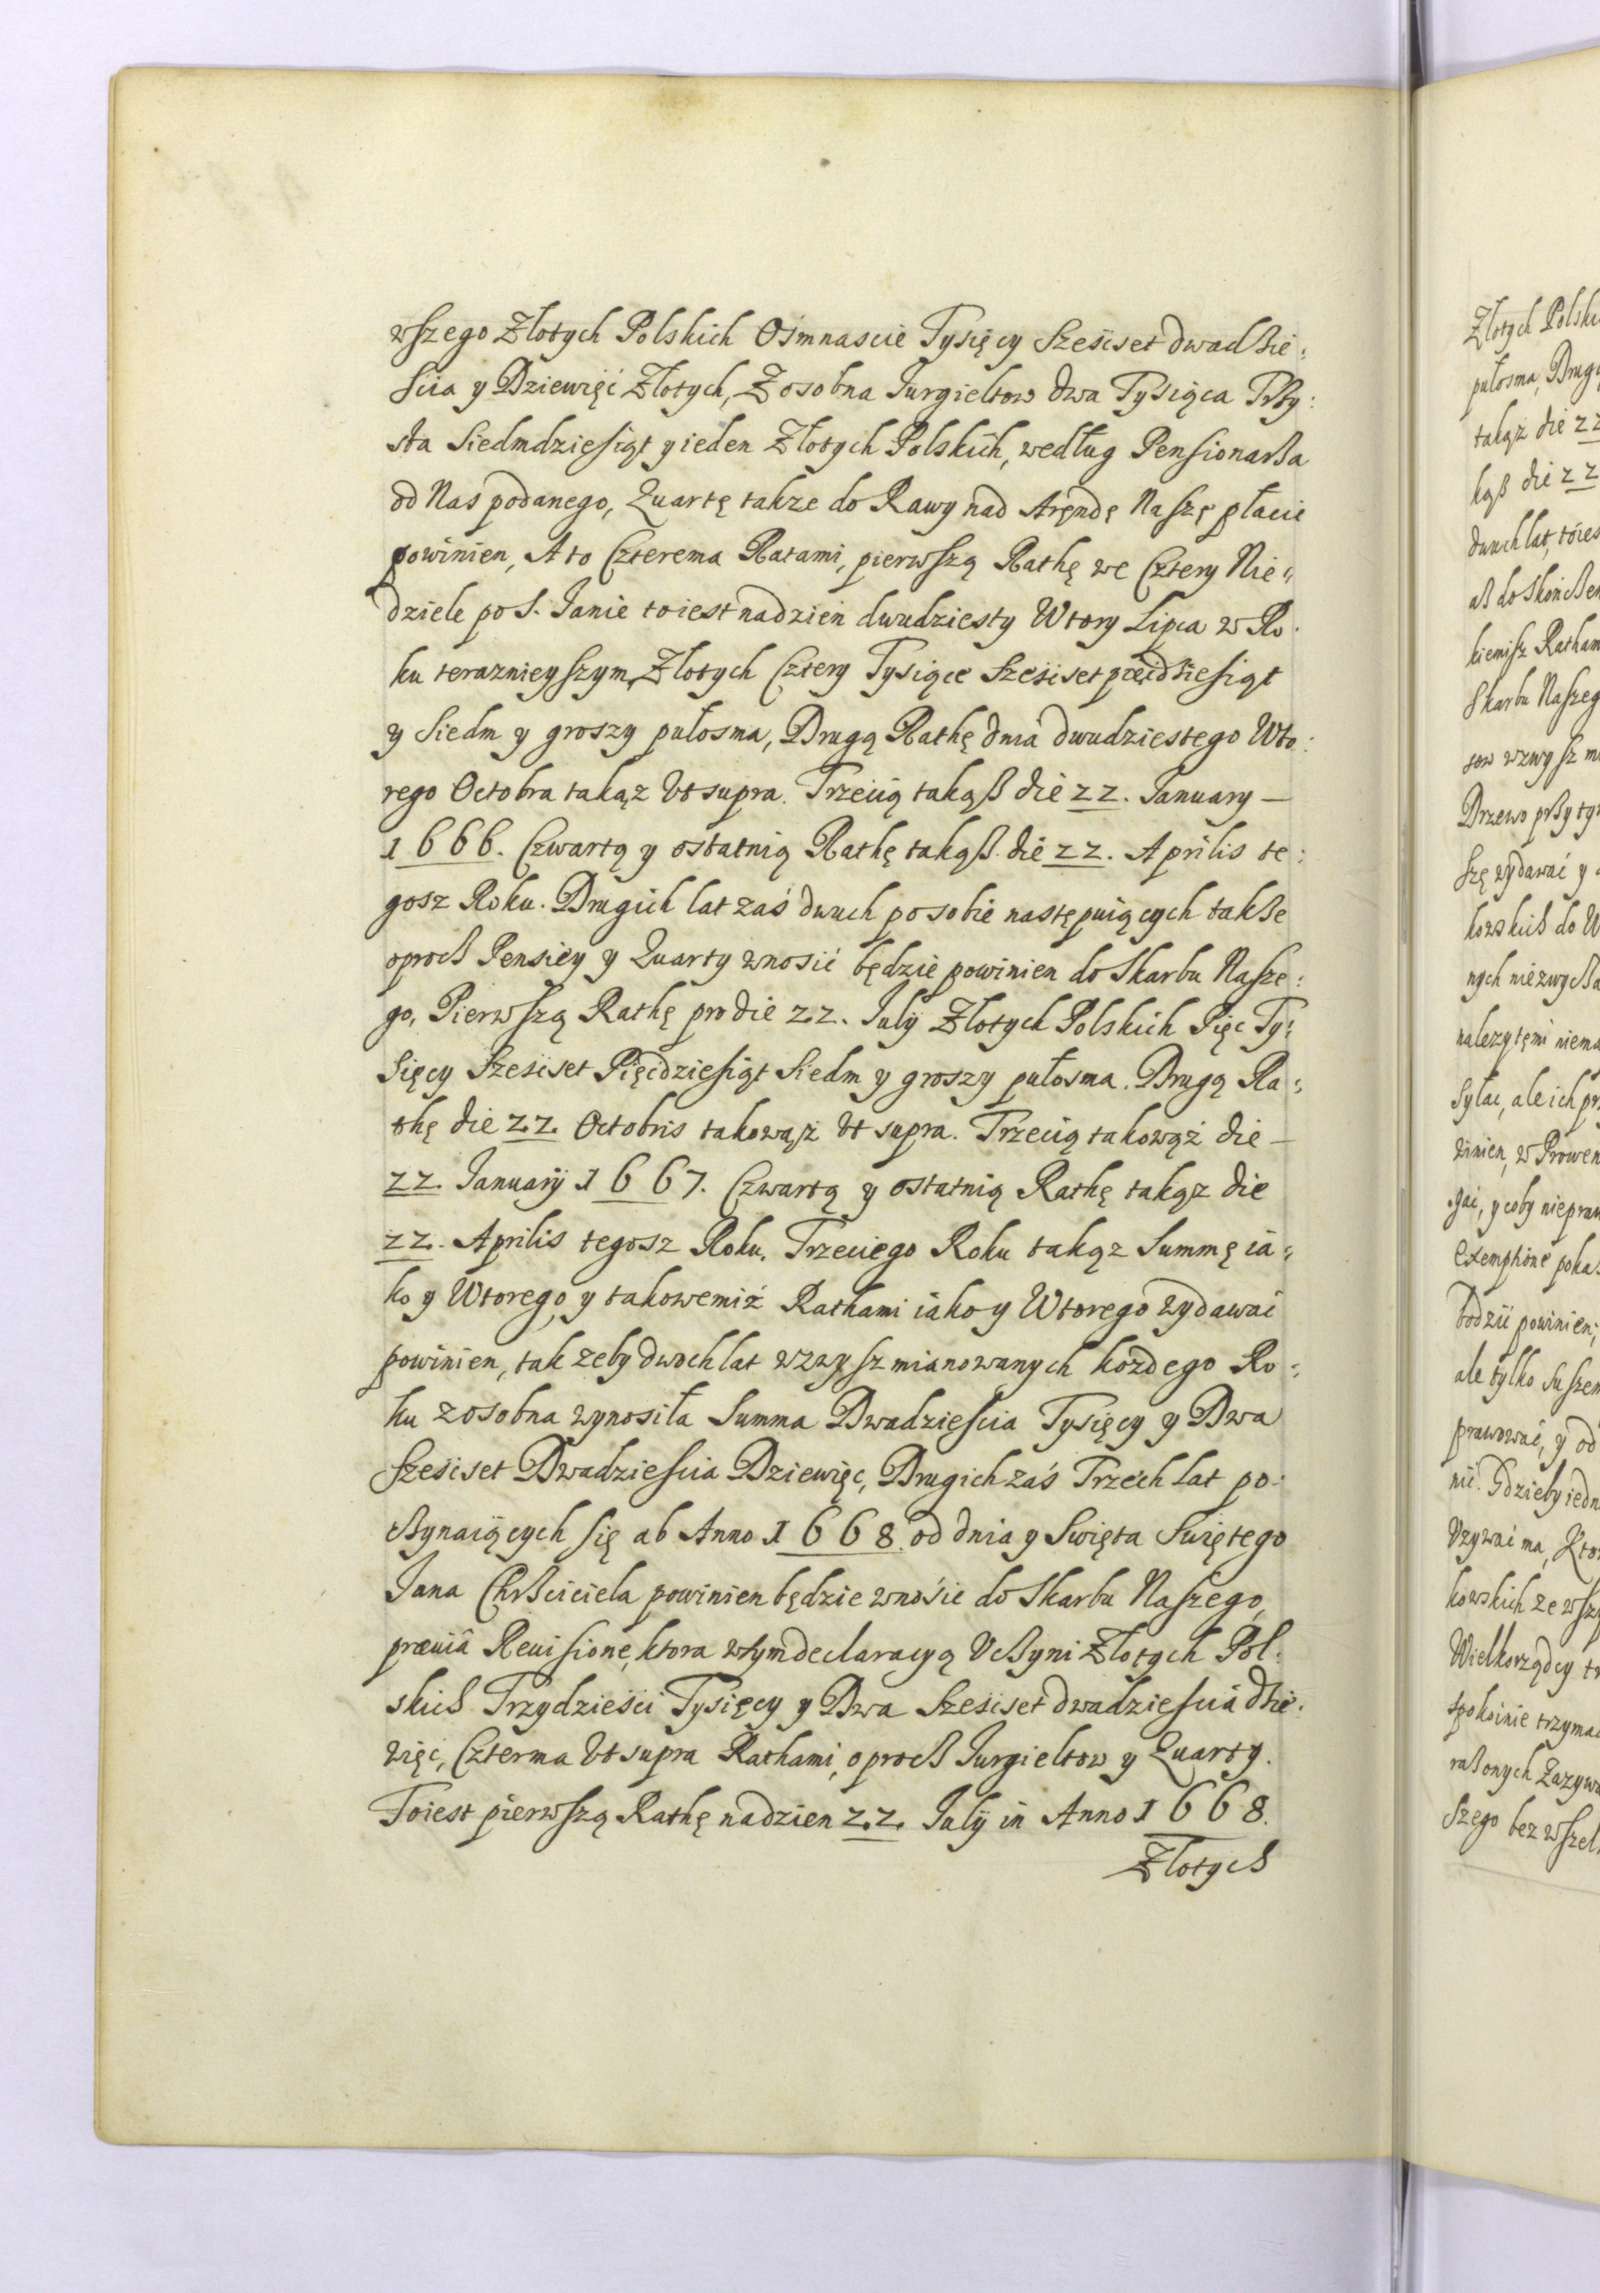 wszego Złotych Polskich Ośmnascie Tysięcy Sześćset dwadßie:
scia y Dziewięć Złotych, Z osobna Jurgieltow dwa Tysiąca Trßy:
sta Siedmdziesiąt y ieden Złotych Polskich, według Pensionarßa
od Nas podanego, Quartę takze do Rawy nad Arędę Naszę płacić
powinien, A to Czterema Ratami, pierwszą Rathę we Cztery Nie:
dziele po S. Janie to iest na dzien dwudziesty Wtory Lipca w Ro:
ku teraznieyszym, Złotych Cztery Tysiące Sześćset pięćdßiesiąt
y Siedm y groszy pułosma, Drugą Rathę dnia dwudziestego Wto:
rego Octobra takąz Vt supra. Trzecią takąß die 22. January —
1666. Czwartą y ostatnią Rathę takąß die 22. Aprilis te:
gosz Roku. Drugich lat zaś dwuch po sobie następuiących takße
oproch Pensiey y Quarty wnosić będzie powinien do Skarbu Nasze:
go, Pierwszą Rathę pro die 22. Julÿ Złotych Polskich Pięc Ty:
sięcy Sześćset Pięćdziesiąt Siedm y groszy pułosma. Drugą Ra:
thę die 22. Octobris takowąż Vt supra. Trzecią takowąż die —
22. Januarÿ 1667. Czwartą y ostatnią Rathę takąz die
22. Aprilis tegosz Roku. Trzeciego Roku takąz Summę ia:
ko y Wtorego, y takowemiż Rathami iako y Wtorego wydawać
powinien, tak zeby dwoch lat wzwysz mianowanych kozdego Ro:
ku zosobna wynosiła Summa Dwadziescia Tysięcy y Dwa
Sześćset Dwadziescia Dziewięc, Drugich zaś Trzech lat po:
cßynaiących się ab Anno 1668. od dnia y Swięta Swiętego
Jana Chrßciciela powinien będzie wnośić do Skarbu Naszego,
præviâ Revisione, ktora w tym declaracyą Vcßyni Złotych Pol:
skich Trzydzieści Tysięcy y Dwa Sześćset dwadziescia dßie:
więć, Czterma Vt supra Rathami, oproch Jurgieltow y Quarty.
To iest pierwszą Rathę na dzien 22. Julÿ in Anno 1668.
Złotych
Złotych Polski
pułosma, Drug
takąż die 22
kąß die 22
dwuch lat, to ies
aß do skońcßen
kiemisz Ratham
Skarbu Naszeg
tow wzwysz mi
Drzewo prßy ty
szę wydawać y
kowskich do W
nych niezwycßa
nalezytęmi niema
syłac, ale ich pr
winien, w Prowen
y coby niepraw
Exemptione poka
bodzić powinien,
ale tylko Suszen
prawować, y od
nić. Gdzieby iedn
Vzywać ma, Kto
kowskich ze wszy
Wielkorządcy tr
spokoinie trzymac
raßonych Zazywa
Szego bez wszel